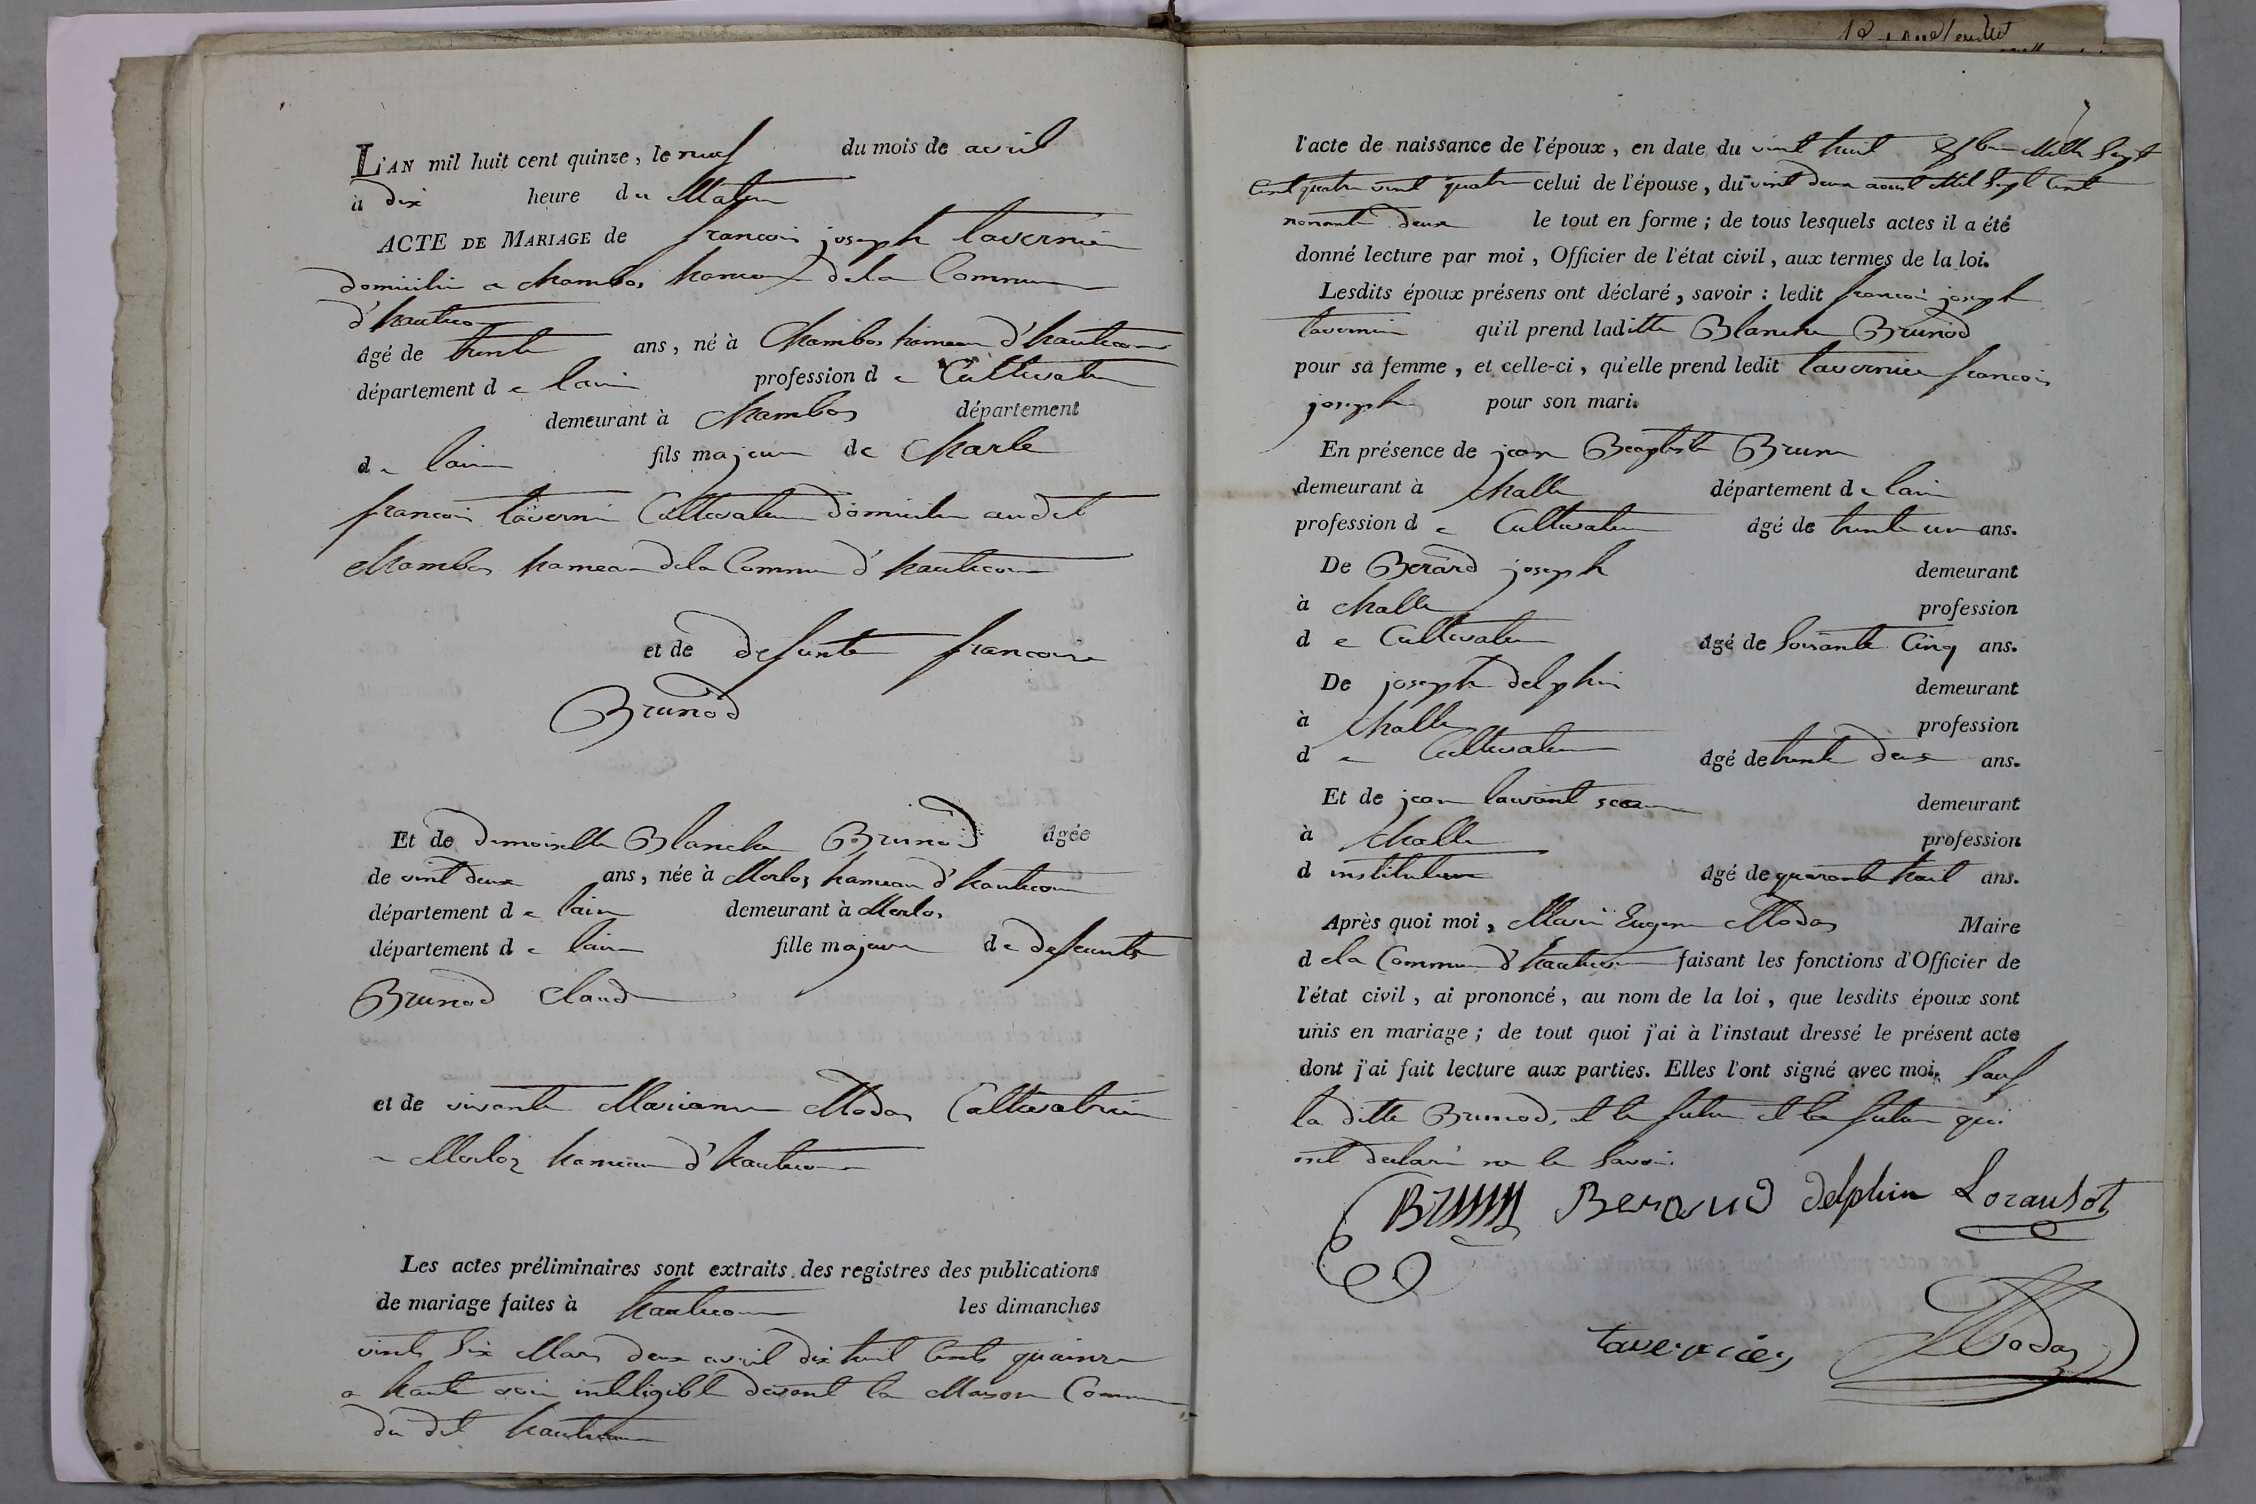 L'AN mil huit cent quinze, le neuf du mois de avril
à dix heure du Matin
ACTE DE MARIAGE de francois joseph tavernier
domicilie a chambos hameau dela Commune
d'hautecour
âgé de trente ans, né à Chambos hameau d'hautecour
département de lain profession de Cultivateur
demeurant à Chambos département
de lain fils majeur de Charle
francois taverni Cultivateur domicilie audit
Chambos hameau dela Commune d'hautecour
et de defunte francoise
Brunod
Et de demoiselle Blanche Brunod âgée
de vint deux ans, née à Merloz hameau d'hautecour
département de lain demeurant à Merloz
département de lain fille majeure de defeunte
Brunod claude
et de vivante Marianne Modas Cultivatrice
a Merloz hameau d'hautecour
Les actes préliminaires sont extraits des registres des publications
de mariage faites à hautecour les dimanches
vints six Mars deux avril dix huit Cents quainze
a haute voix inteligible devant la Maison Commune
du dit hautecour
l'acte de naissance de l'époux, en date du vint huit Mille Sept
Cent quatre vint quatre celui de l'épouse, du vint deux aout Mil Sept Cent
nonante deux le tout en forme; de tous lesquels actes il a été
donné lecture par moi, Officier de l'état civil, aux termes de la loi.
Lesdits époux présens ont déclaré, savoir: ledit francois joseph
tavernier qu'il prend laditte Blanche Brunod
pour sa femme, et celle-ci, qu'elle prend ledit tavernier francois
joseph pour son mari.
En présence de jean Beaptiste Brun
demeurant à challe département de lain
profession de Cultivateur âgé de trente un ans.
De Berard joseph demeurant
à challe profession
de Cultivateur âgé de soixante Cinq ans.
De joseph delphin demeurant
à challe profession
de Cultivateur âgé de trente deux ans.
Et de jean laurant demeurant
à challe profession
d instituteur âgé de quarante huit ans.
Après quoi moi, Marie Eugene Modas Maire
dela Commune d'hautecour faisant les fonctions d'Officier de
l'état civil, ai prononcé, au nom de la loi, que lesdits époux sont
unis en mariage; de tout quoi j'ai à l'instaut dressé le présent acte
dont j'ai fait lecture aux parties. Elles l'ont signé avec moi, sauf
la ditte Brunod, et le futur et la future qui
ont declaré ne le savoir.
Brunn Beraud delphin Loransot
tavernier Modas